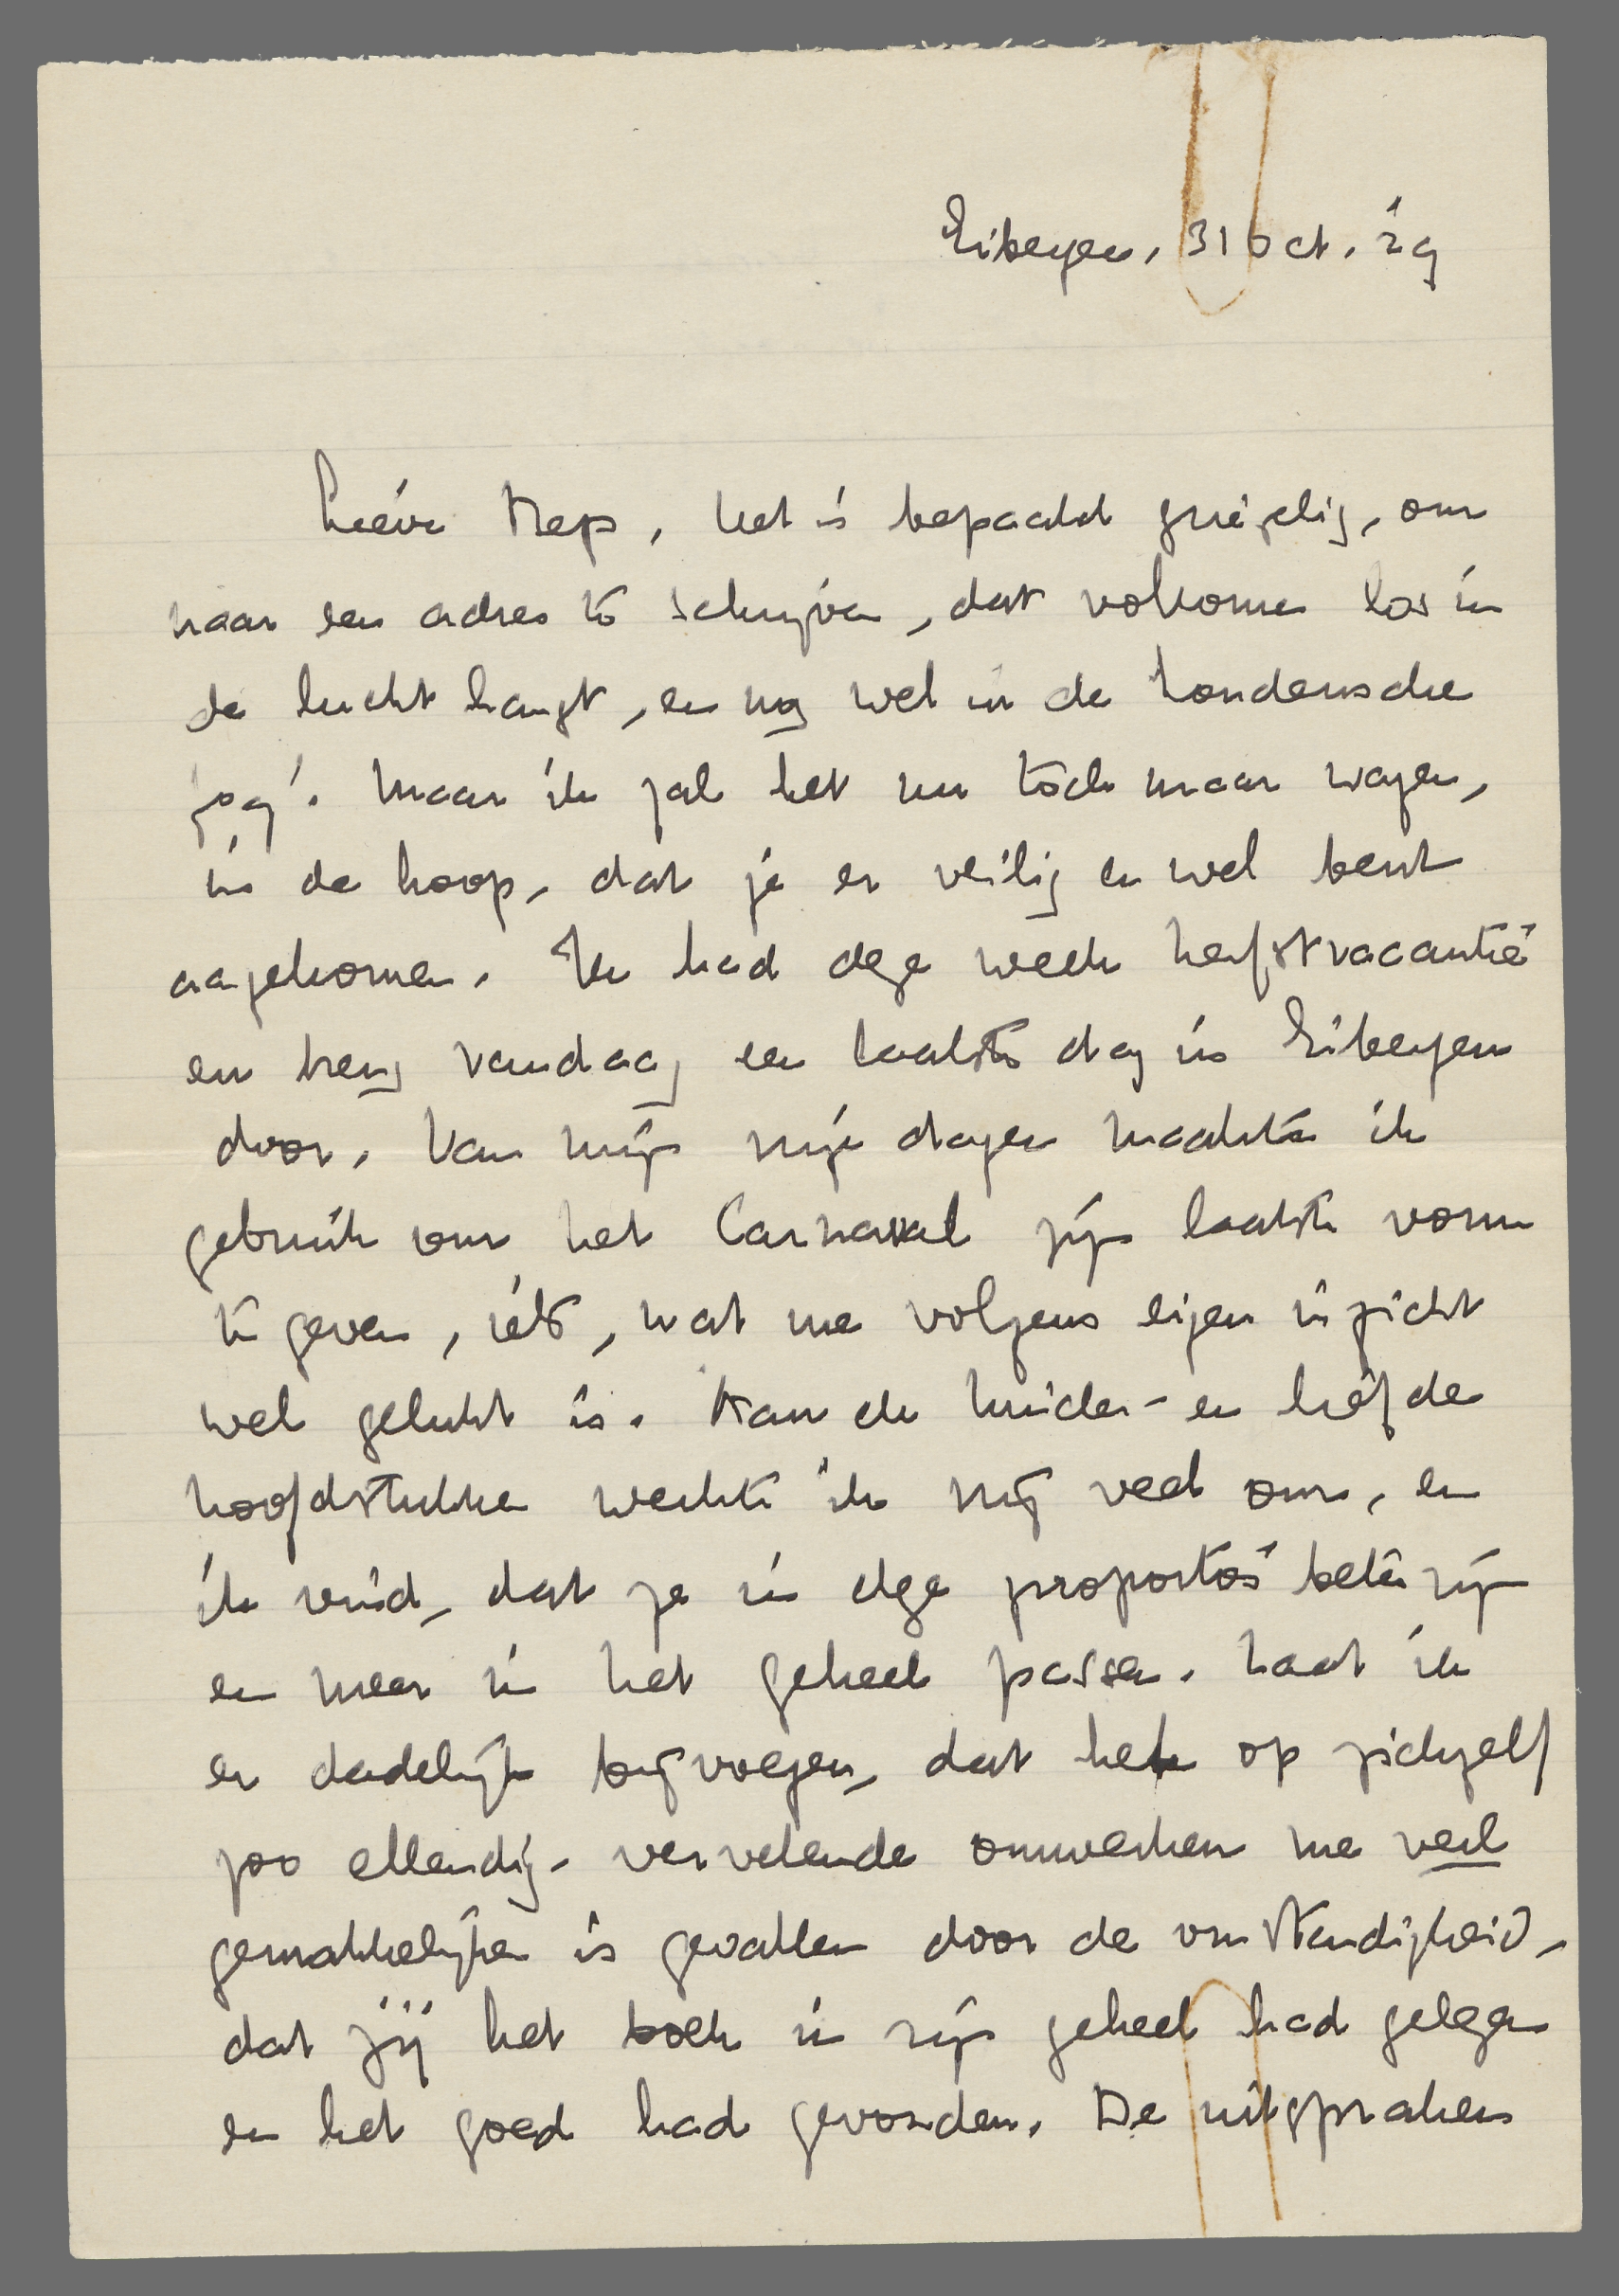 Eibergen, 31 Oct. '29
Lieve Mep, het is bepaald griezelig, om
naar een adres te schrijven, dat volkomen los in
de lucht hangt, en nog wel in de Londensche
fog. Maar ik zal het nu toch maar wagen,
in de hoop, dat je er veilig en wel bent
aangekomen. Ik had deze week herfstvacantie
en breng vandaag een laatste dag in Eibergen
door. Van mijn vrije dagen maakte ik
gebruik om het Carnaval zijn laatste vorm
te geven, iets, wat me volgens eigen inzicht
wel gelukt is. Aan de kinder- en liefde
hoofdstukken werkte ik vrij veel om, en
ik vind, dat ze in deze proporties beter zijn
en meer in het geheel passen. Laat ik
er dadelijk bijvoegen, dat het op zichzelf
zoo ellendig-vervelende omwerken me veel
gemakkelijker is gevallen door de omstandigheid,
dat jij het boek in zijn geheel had gelezen
en het goed had gevonden. De uitspraken